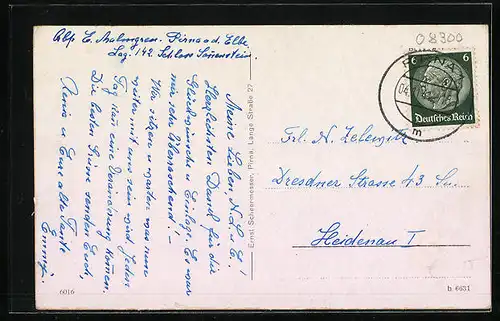 Abs. E. Malmgren. Pirna a d. Elbe
Lag. 142. Schloss Sonnenstein.
08300
PIRNA
04
m
6 6
Deutsches Reich
Meine Lieben, N. L. u. E.!
Herzlichsten Dank für die
Glückwünsche u. Einlage. Es war
mir sehr überraschend! –
Wir sitzen u. warten, was nun
weiter mit uns sein wird. Jeden
Tag kann eine Änderung kommen.
Die besten Grüsse senden Euch,
Xenia u. Eure alte Tante
Emmy.
Ernst Schrermesser, Pirna, Lange Straße 22
Frl. N. Zelewitz
Dresdner Strasse 43
Heidenau I
6016
h 6631